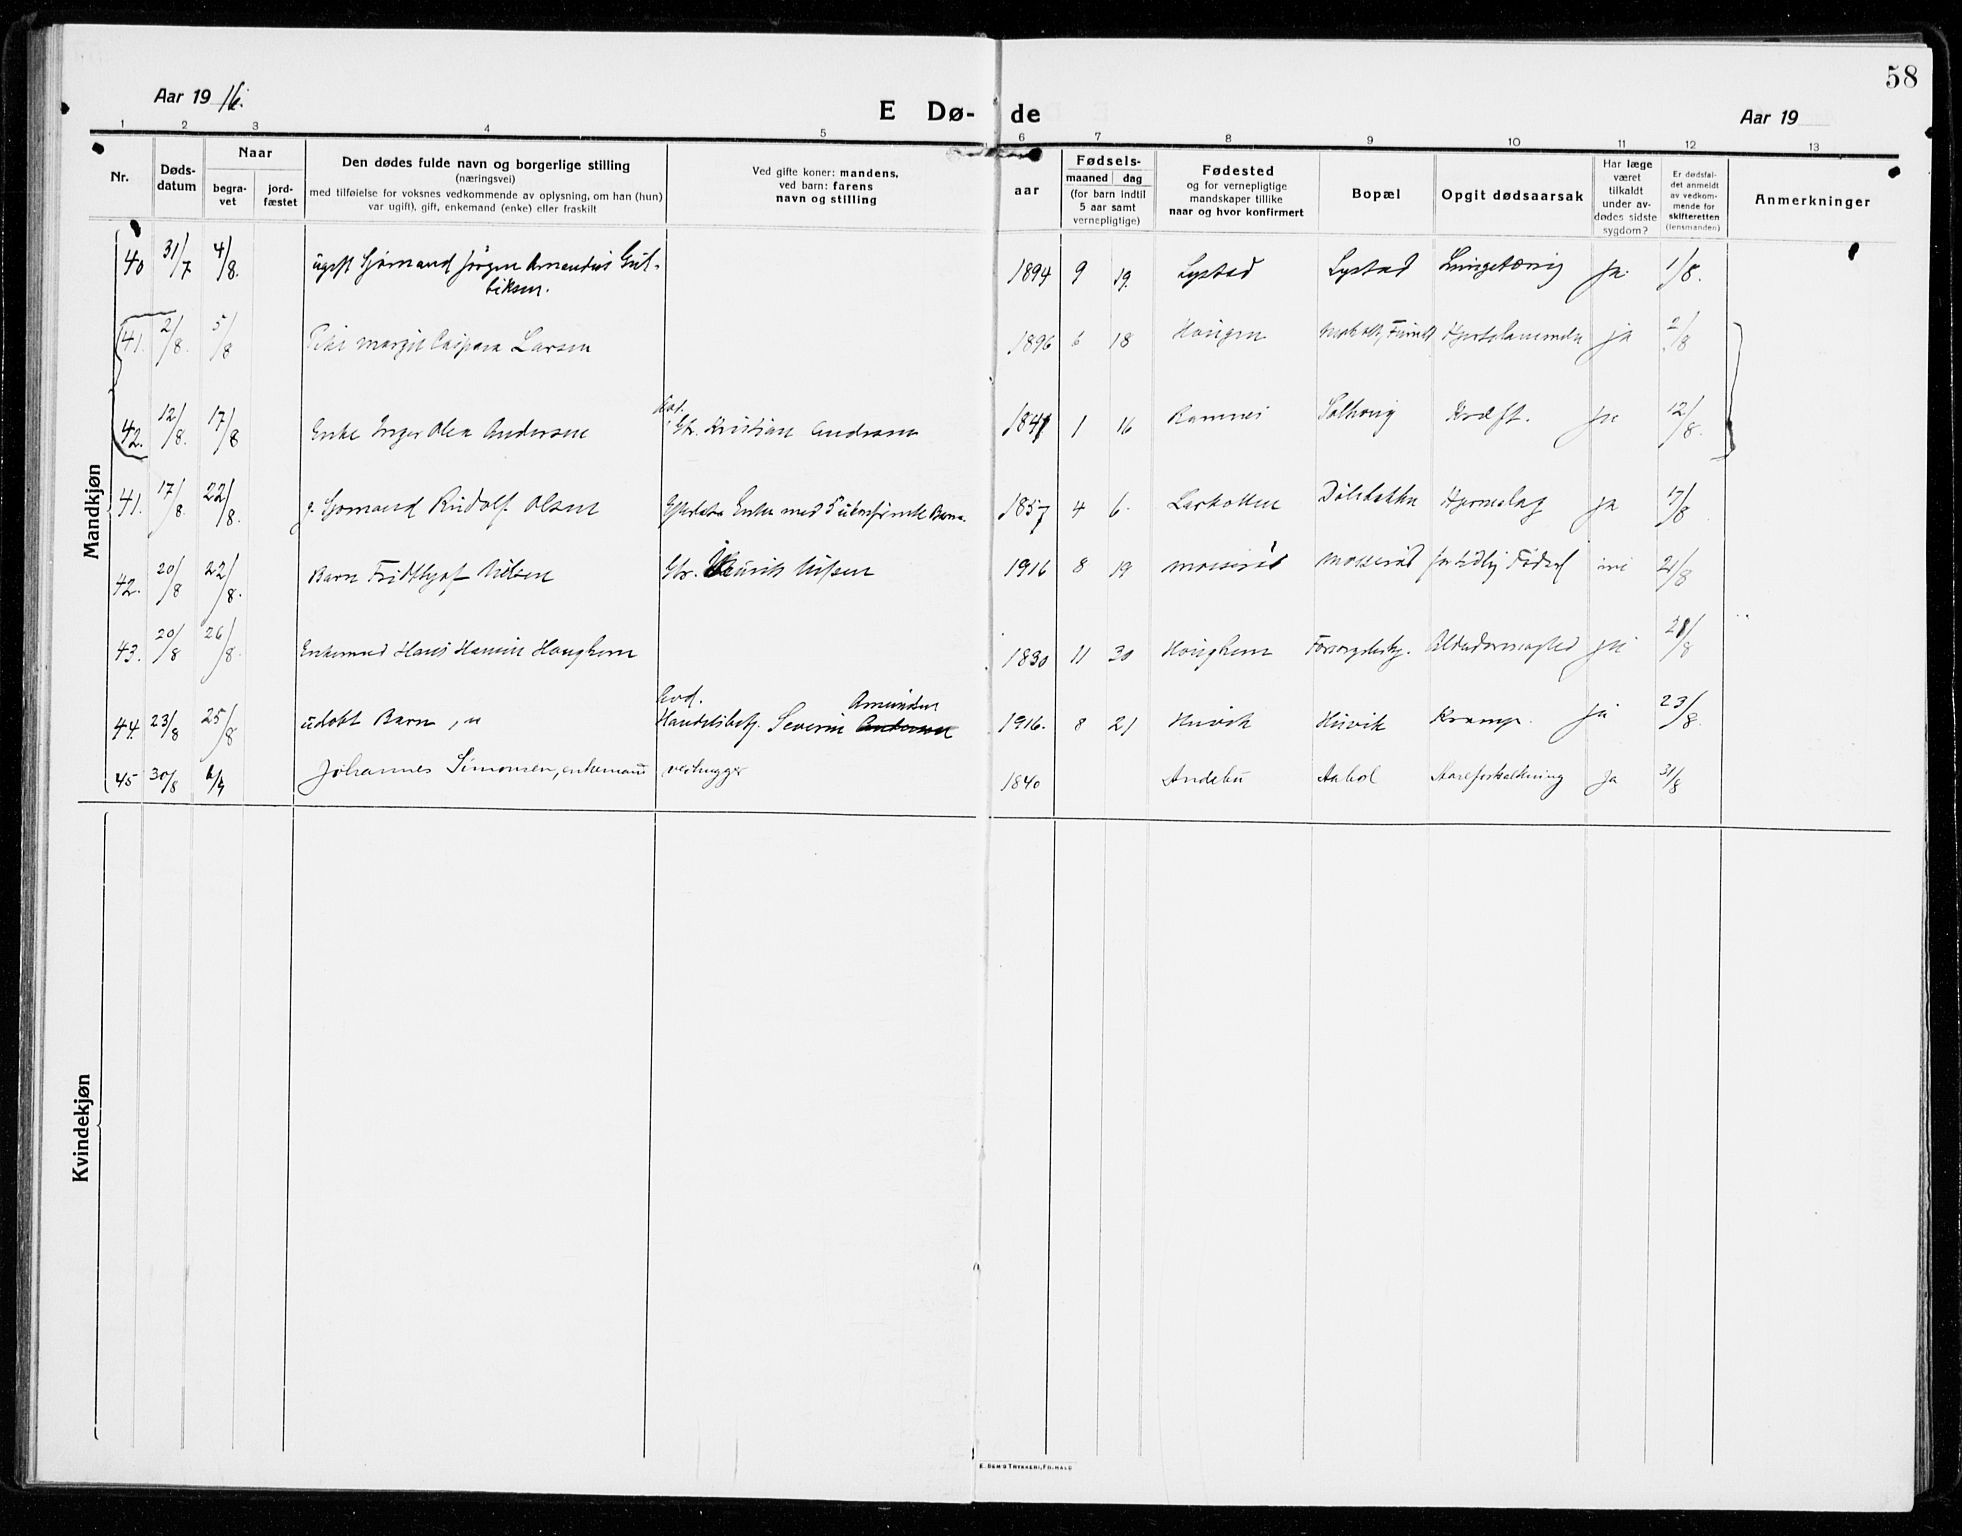 58
Aar 19 16.
E Dø- de
Aar 19
1 2 3 4 5 6 7 8 9 10 11 12 13
Nr.
Døds-
datum
Naar
begra-
vet
jord-
fæstet
Den dødes fulde navn og borgerlige stilling
(næringsvei)
med tilføielse for voksnes vedkommende av oplysning, om han (hun)
var ugift), gift, enkemand (enke) eller fraskilt
Ved gifte koner: mandens,
ved barn: farens
navn og stilling
aar
Fødsels-
maaned dag
(for barn indtil
5 aar samt
vernepligtige)
Fødested
og for vernepligtige
mandskaper tillike
naar og hvor konfirmert
Bopæl
Opgit dødsaarsak
Har læge
været
tilkaldt
under av-
dødes sidste
sygdom?
Er dødsfal-
det anmeldt
av vedkom-
mende for
skifteretten
(lensmanden)
Anmerkninger
Mandkjøn
40 31/7 4/8. ugift Sjømand Jørgen Amandus Gul-
biksen. 1894 9 19. Lystad Lystad Lungetæring ja. 1/8.
41. 2/8. 5/8 Pike Margit Caspara Larsen 1896 6 18 Haugen ja 2/8
42. 12/8. 17/8 Enke Inger Olea Andersen Gbr. Kristian Andersen 1841 1 16 Ramnes Solhaug Kræft. ja 12/8.
41. 17/8. 22/8. g. Sjømand Rudolf Olsen Efterlater Enke med 5 uforsørgede Barn. 1857 4 6. Larkollen Hjerneslag ja 17/8
42. 20/8 22/8. Barn Fridthjof Nilsen Gbr. Nilsen 1916 8 19 Moserød Moserød for tidlig Fødsel nei 21/8
43. 20/8 26/8. Enkemand Hans Hansen Haughem 1830 11 30 Haughem Forsørgelseshj. Alderdomssvaghed ja 21/8
44. 23/8 25/8 udøbt Barn, Handelsbetj. Severin Amundsen Andersen 1916. 8 21 Husvik Husvik Krampe. ja 23/8.
45 30/8 Johannes Simonsen, enkemand vedhugger 1840 Andebu Aabol Aareforkalkning ja 31/8
Kvindekjøn
E. SEM'S TRYKKERI, FR.HALD